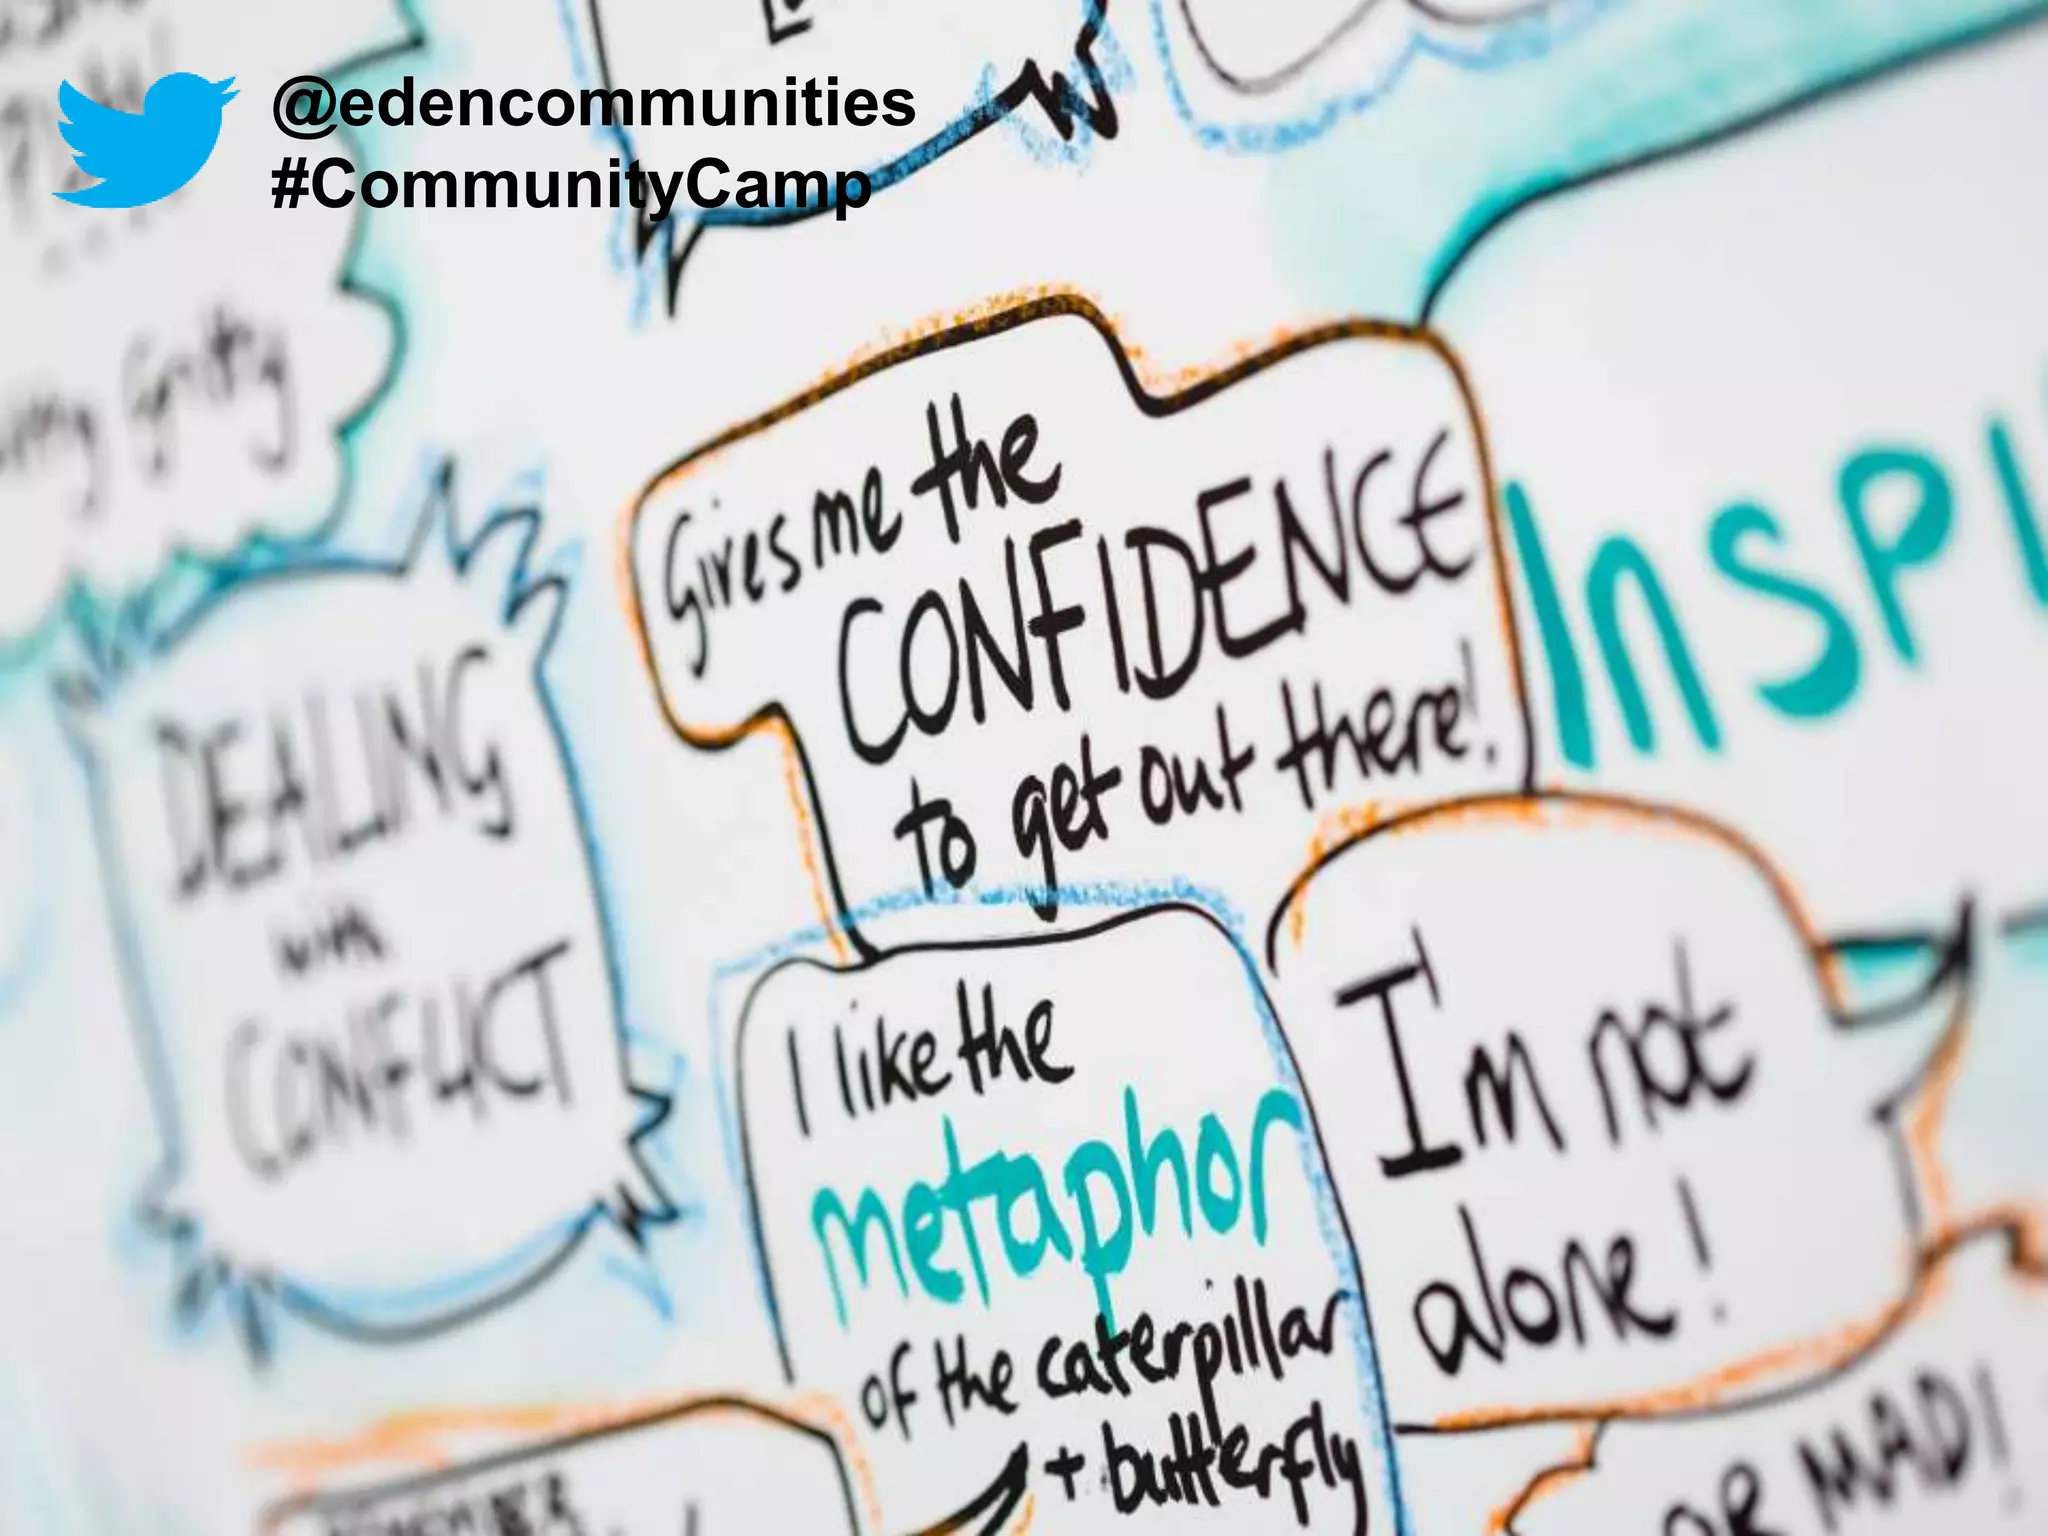 @edencommunities
#CommunityCamp
gritty
Gives me the
CONFIDENCE
to get out there!
INSPI
DEALING
with
CONFLICT
I like the
metaphor
of the caterpillar
+ butterfly
I'm not
alone!
REMEMBER
OR MAD!